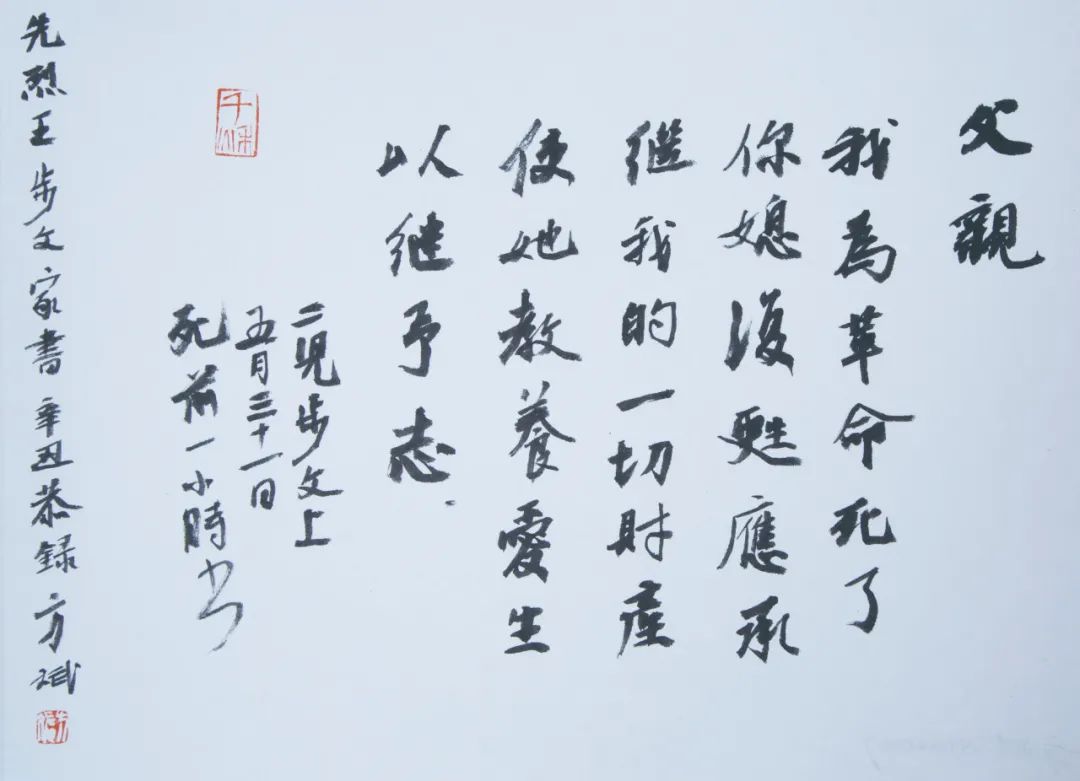 父親
我為革命死了
你媳復甦應承
继我的一切财產
使她教養愛生
以继予志
二兒步文上
五月三十一日
死前一小時书
先烈王步文家書 辛丑恭録 方斌